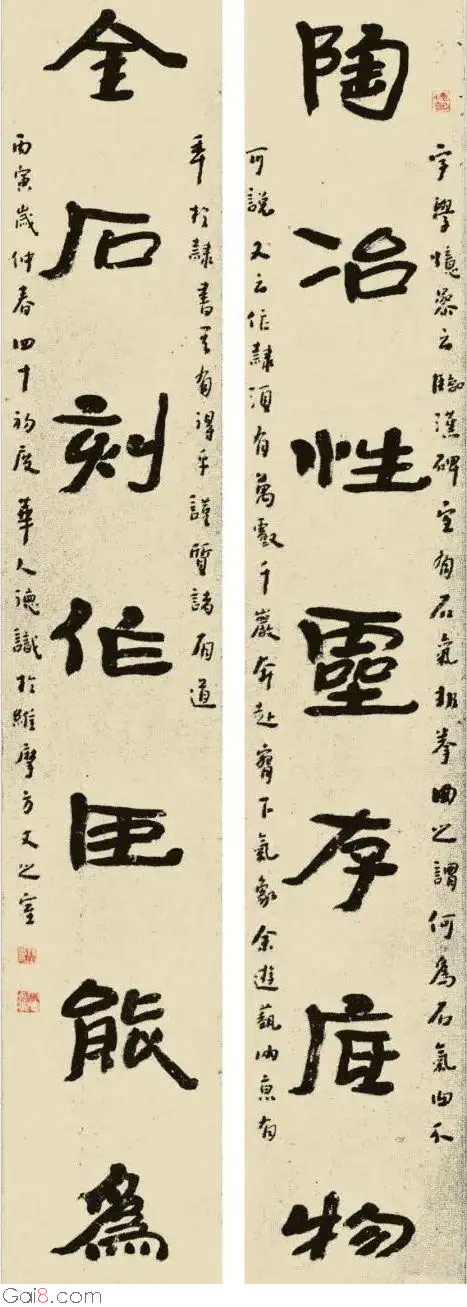 陶冶性靈存底物
字學憶參云臨漢碑宜有石氣非拳曲之謂何為石氣曰不
可說又云作隸須有萬壑千巖奔赴下氣象余遊藝京有
金石刻作臣能為
年於隸書有得乎謹質諸有道
丙寅歲仲春四十初度華人德識於維摩方丈之室
Gai8.com